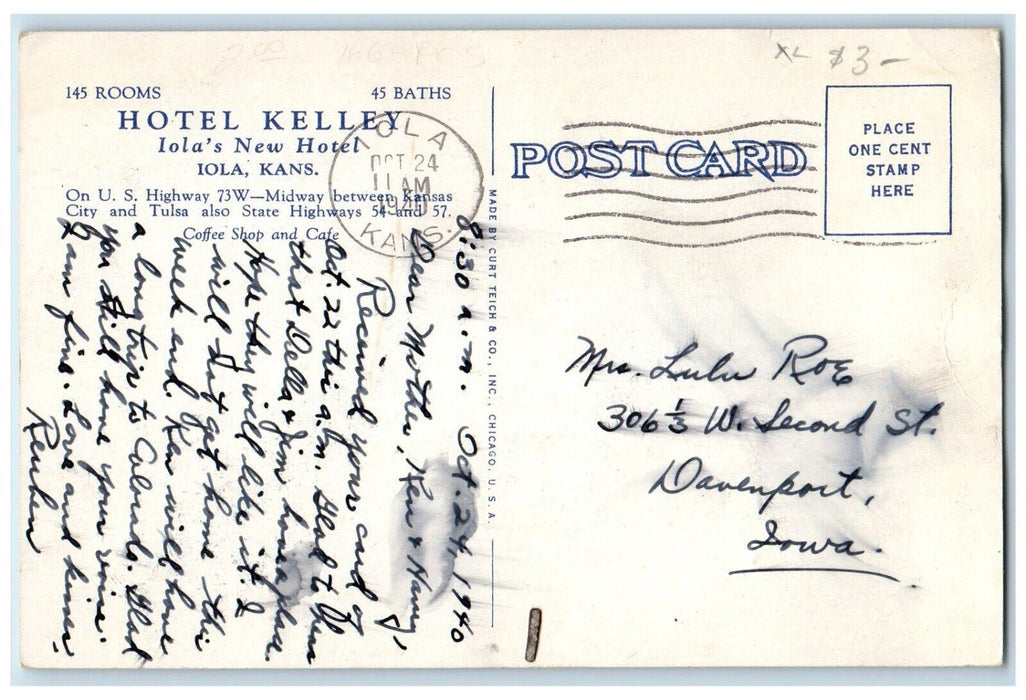 2.00 166-PCS
XL $3-
145 ROOMS 45 BATHS
HOTEL KELLEY
Iola's New Hotel
IOLA, KANS.
On U. S. Highway 73W—Midway between Kansas
City and Tulsa also State Highways 54 and 57.
Coffee Shop and Cafe
IOLA
OCT 24
11 AM
1940
KANS.
8:30 a.m. Oct. 24, 1940
Dear Mother, Ken & Nancy,
Received your card of
Oct. 22 this a.m. Glad to hear
that Della & Jim have a place.
Hope they will like it. I
will not get home this
week end. Ken will have
a long trip to Colorado. Glad
you still have your voice.
I am fine. Love and kisses,
Reuben
MADE BY CURT TEICH & CO., INC., CHICAGO, U. S. A.
POST CARD
PLACE
ONE CENT
STAMP
HERE
Mrs. Lulu Roe
306 1/3 W. Second St.
Davenport,
Iowa.